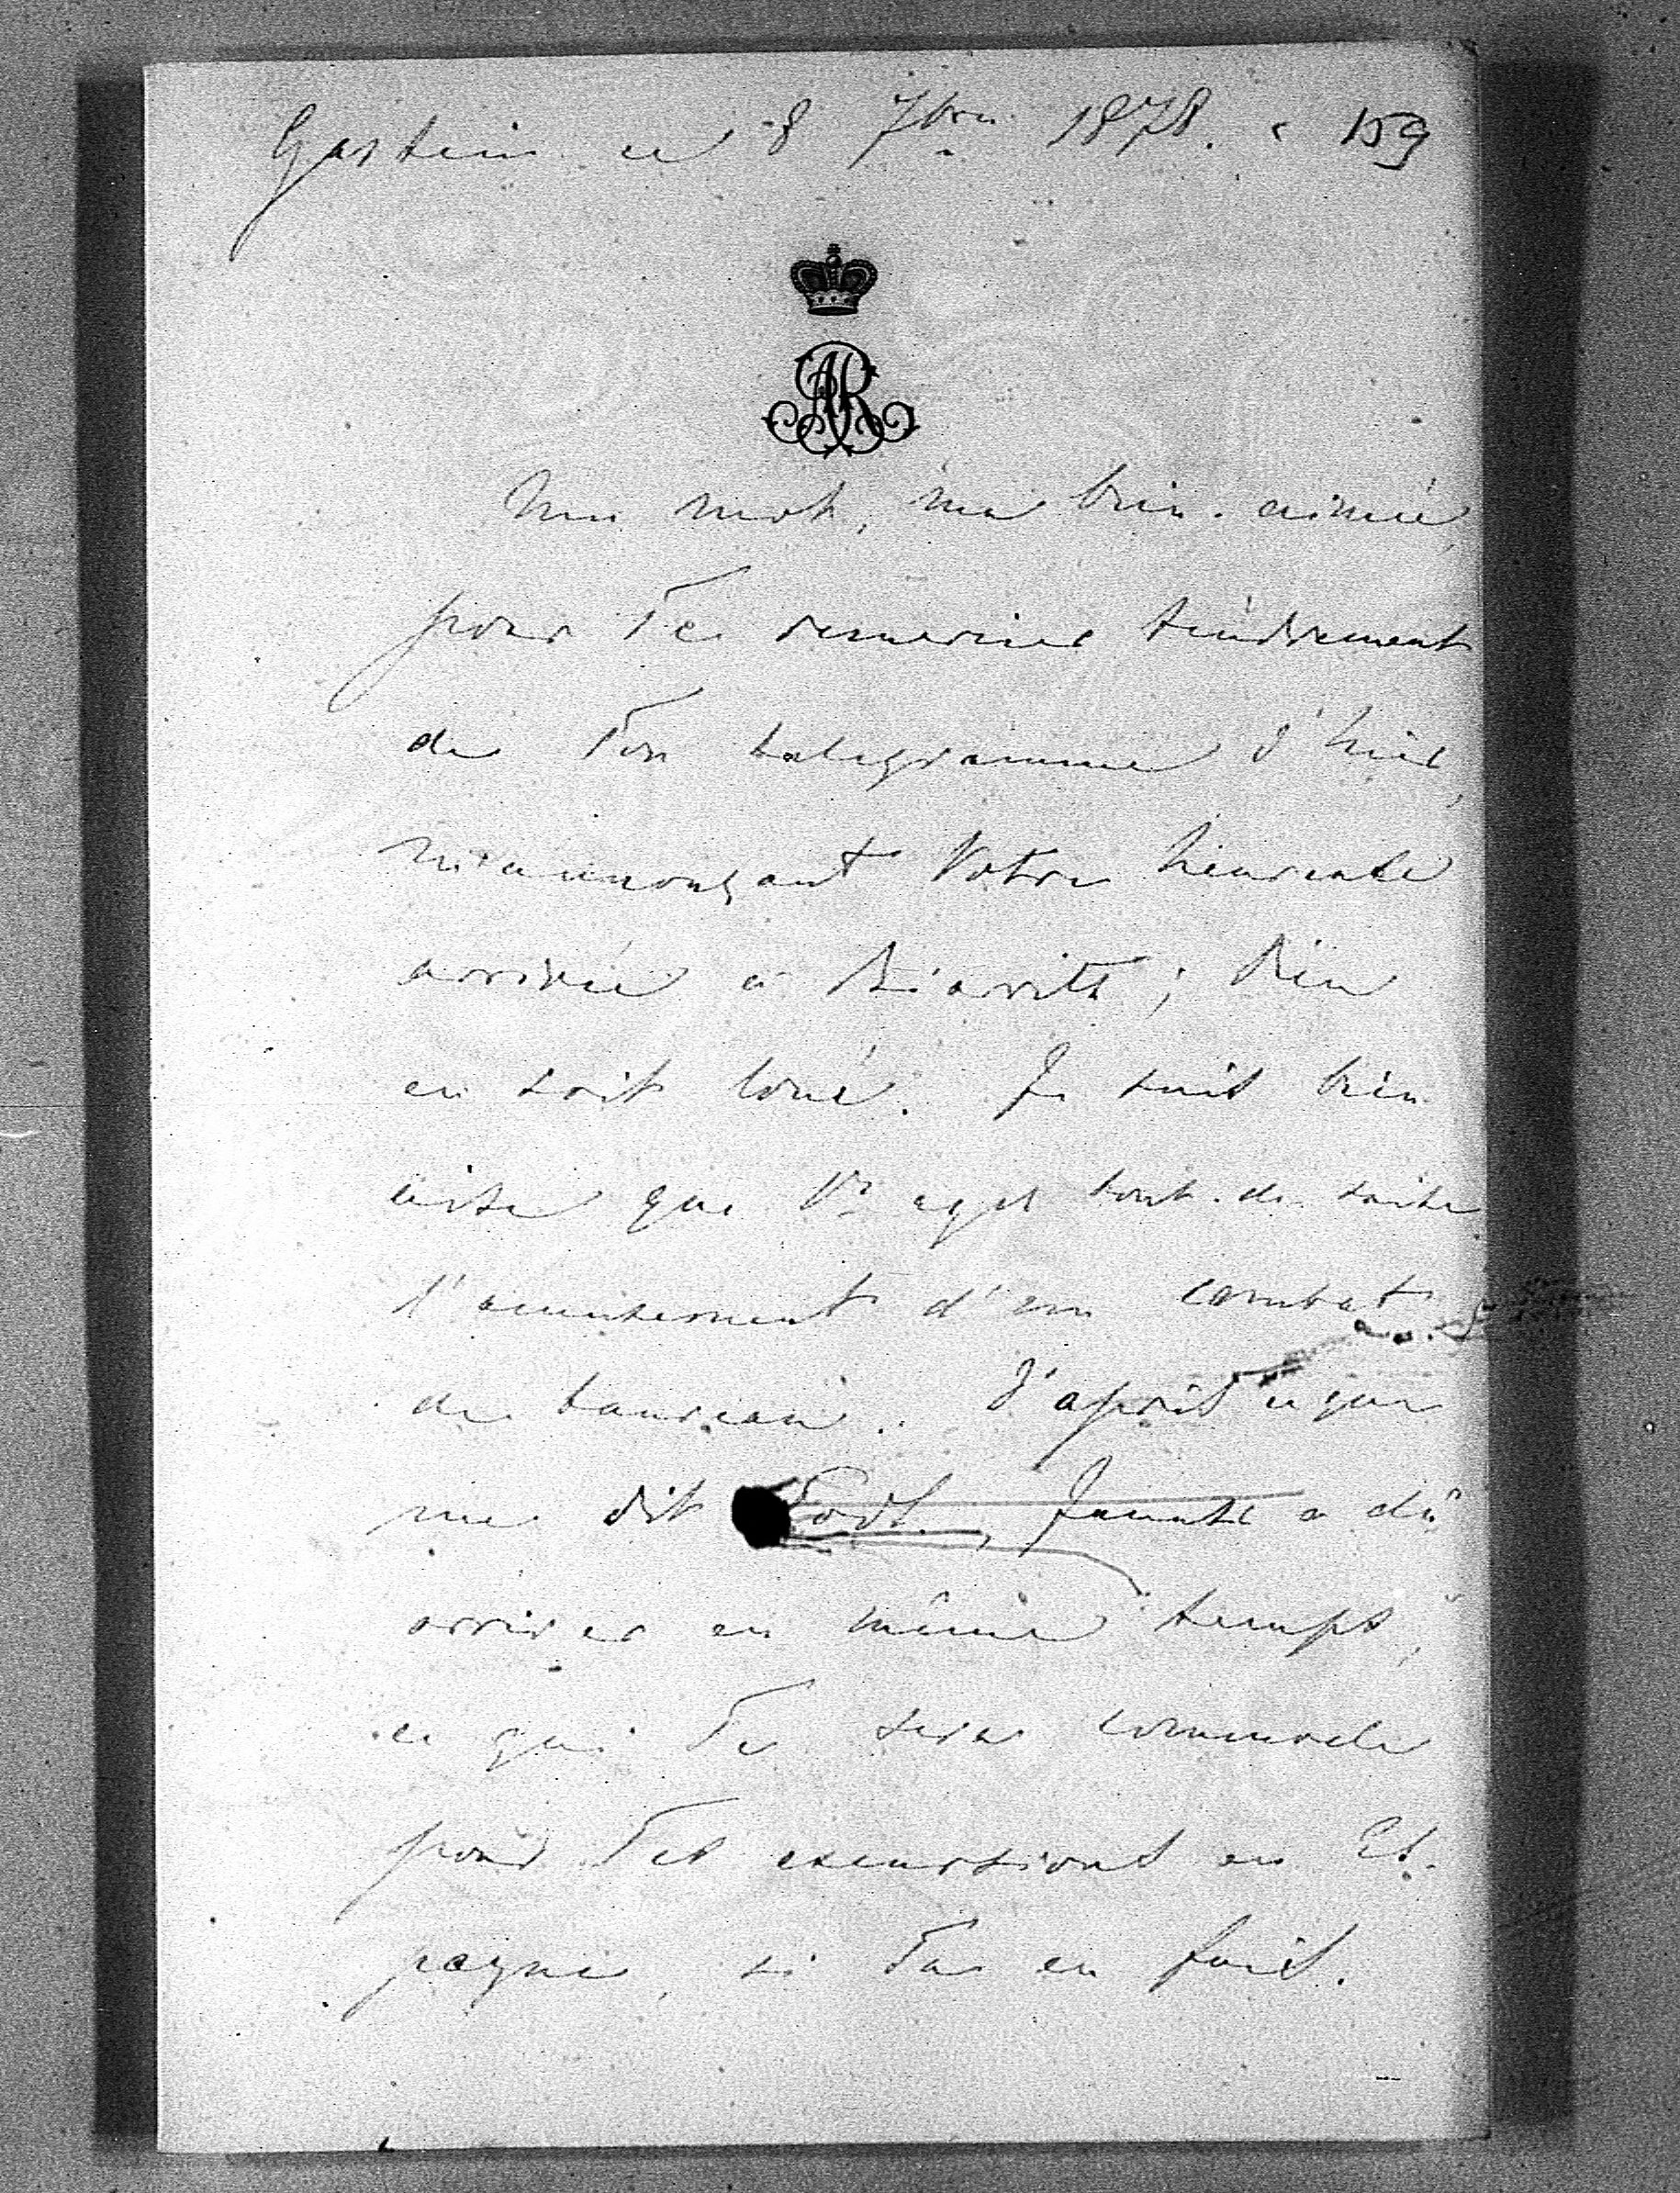 Gastein ce 8 7bre 1878. 159
AR
Un mot, ma bien-aimée,
pour Te remercier tendrement
de Ton telegramme d'hier,
m'annonçant Votre heureuse
arrivée à Biarritz; Dieu
en soit loué. Je suis bien
aise que Vs ayez tout-de-suite
l'amusement d'un combat
de taureau. D'après ce que
me dit a dû
arriver en même temps,
ce qui Te sera commode
pour Tes excursions en Es-
pagne, si Tu en fais.